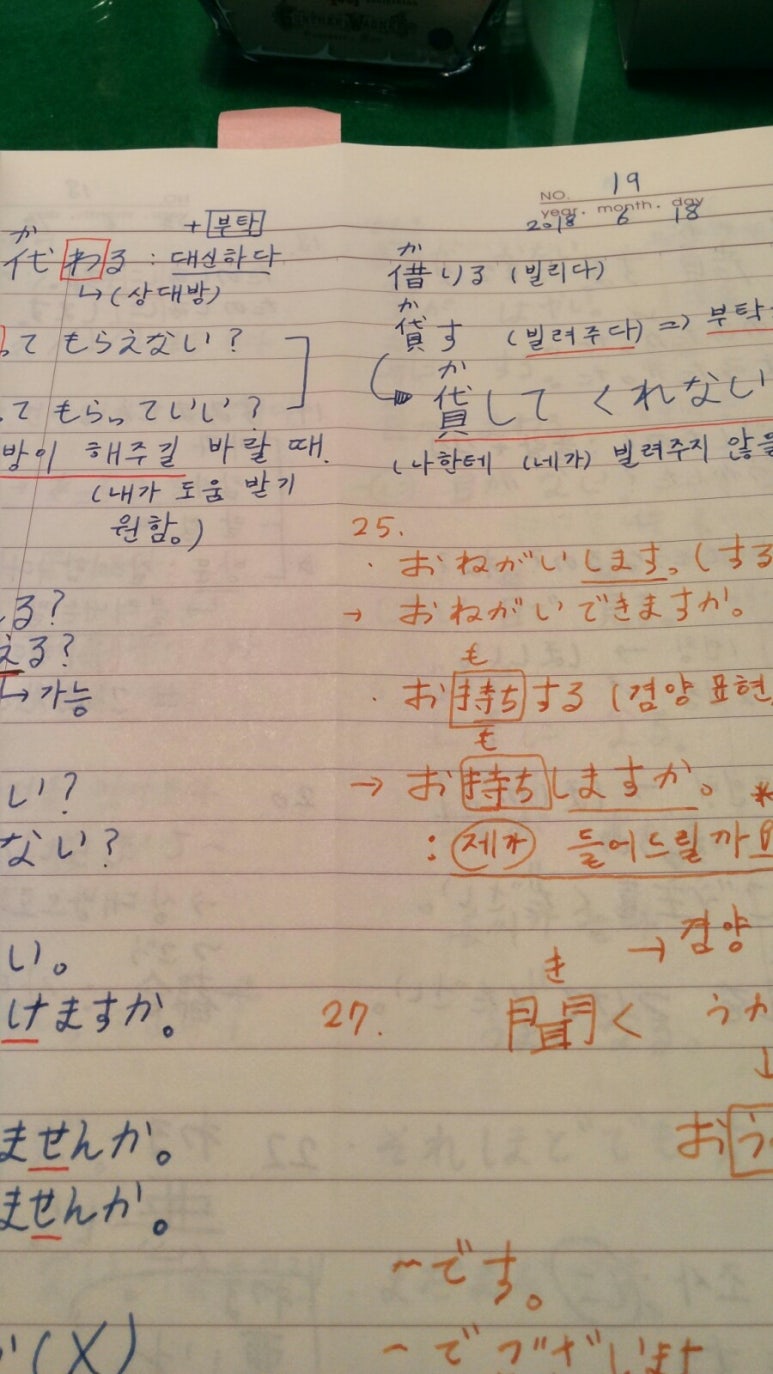 NO. 19
year. month. day
2018 6 18
+ 부탁
か
代わる : 대신하다
↳ (상대방)
って もらえない?
って もらっていい?
방이 해주길 바랄 때.
(내가 도움 받기
원함。)
る?
える?
↳ 가능
い?
ない?
い。
けますか。
ませんか。
ませんか。
(X)
か
借りる (빌리다)
か
貸す (빌려주다) => 부탁
か
貸して くれない
(나한테 (네가) 빌려주지 않을
25.
· おねがいします。(する
→ おねがいできますか。
も
· お持ちする (겸양 표현
も
→ お持ちしますか。 *
: 제가 들어드릴까요
→ 겸양
き
27. 聞く うか
↓
おう
~です。
~でございます